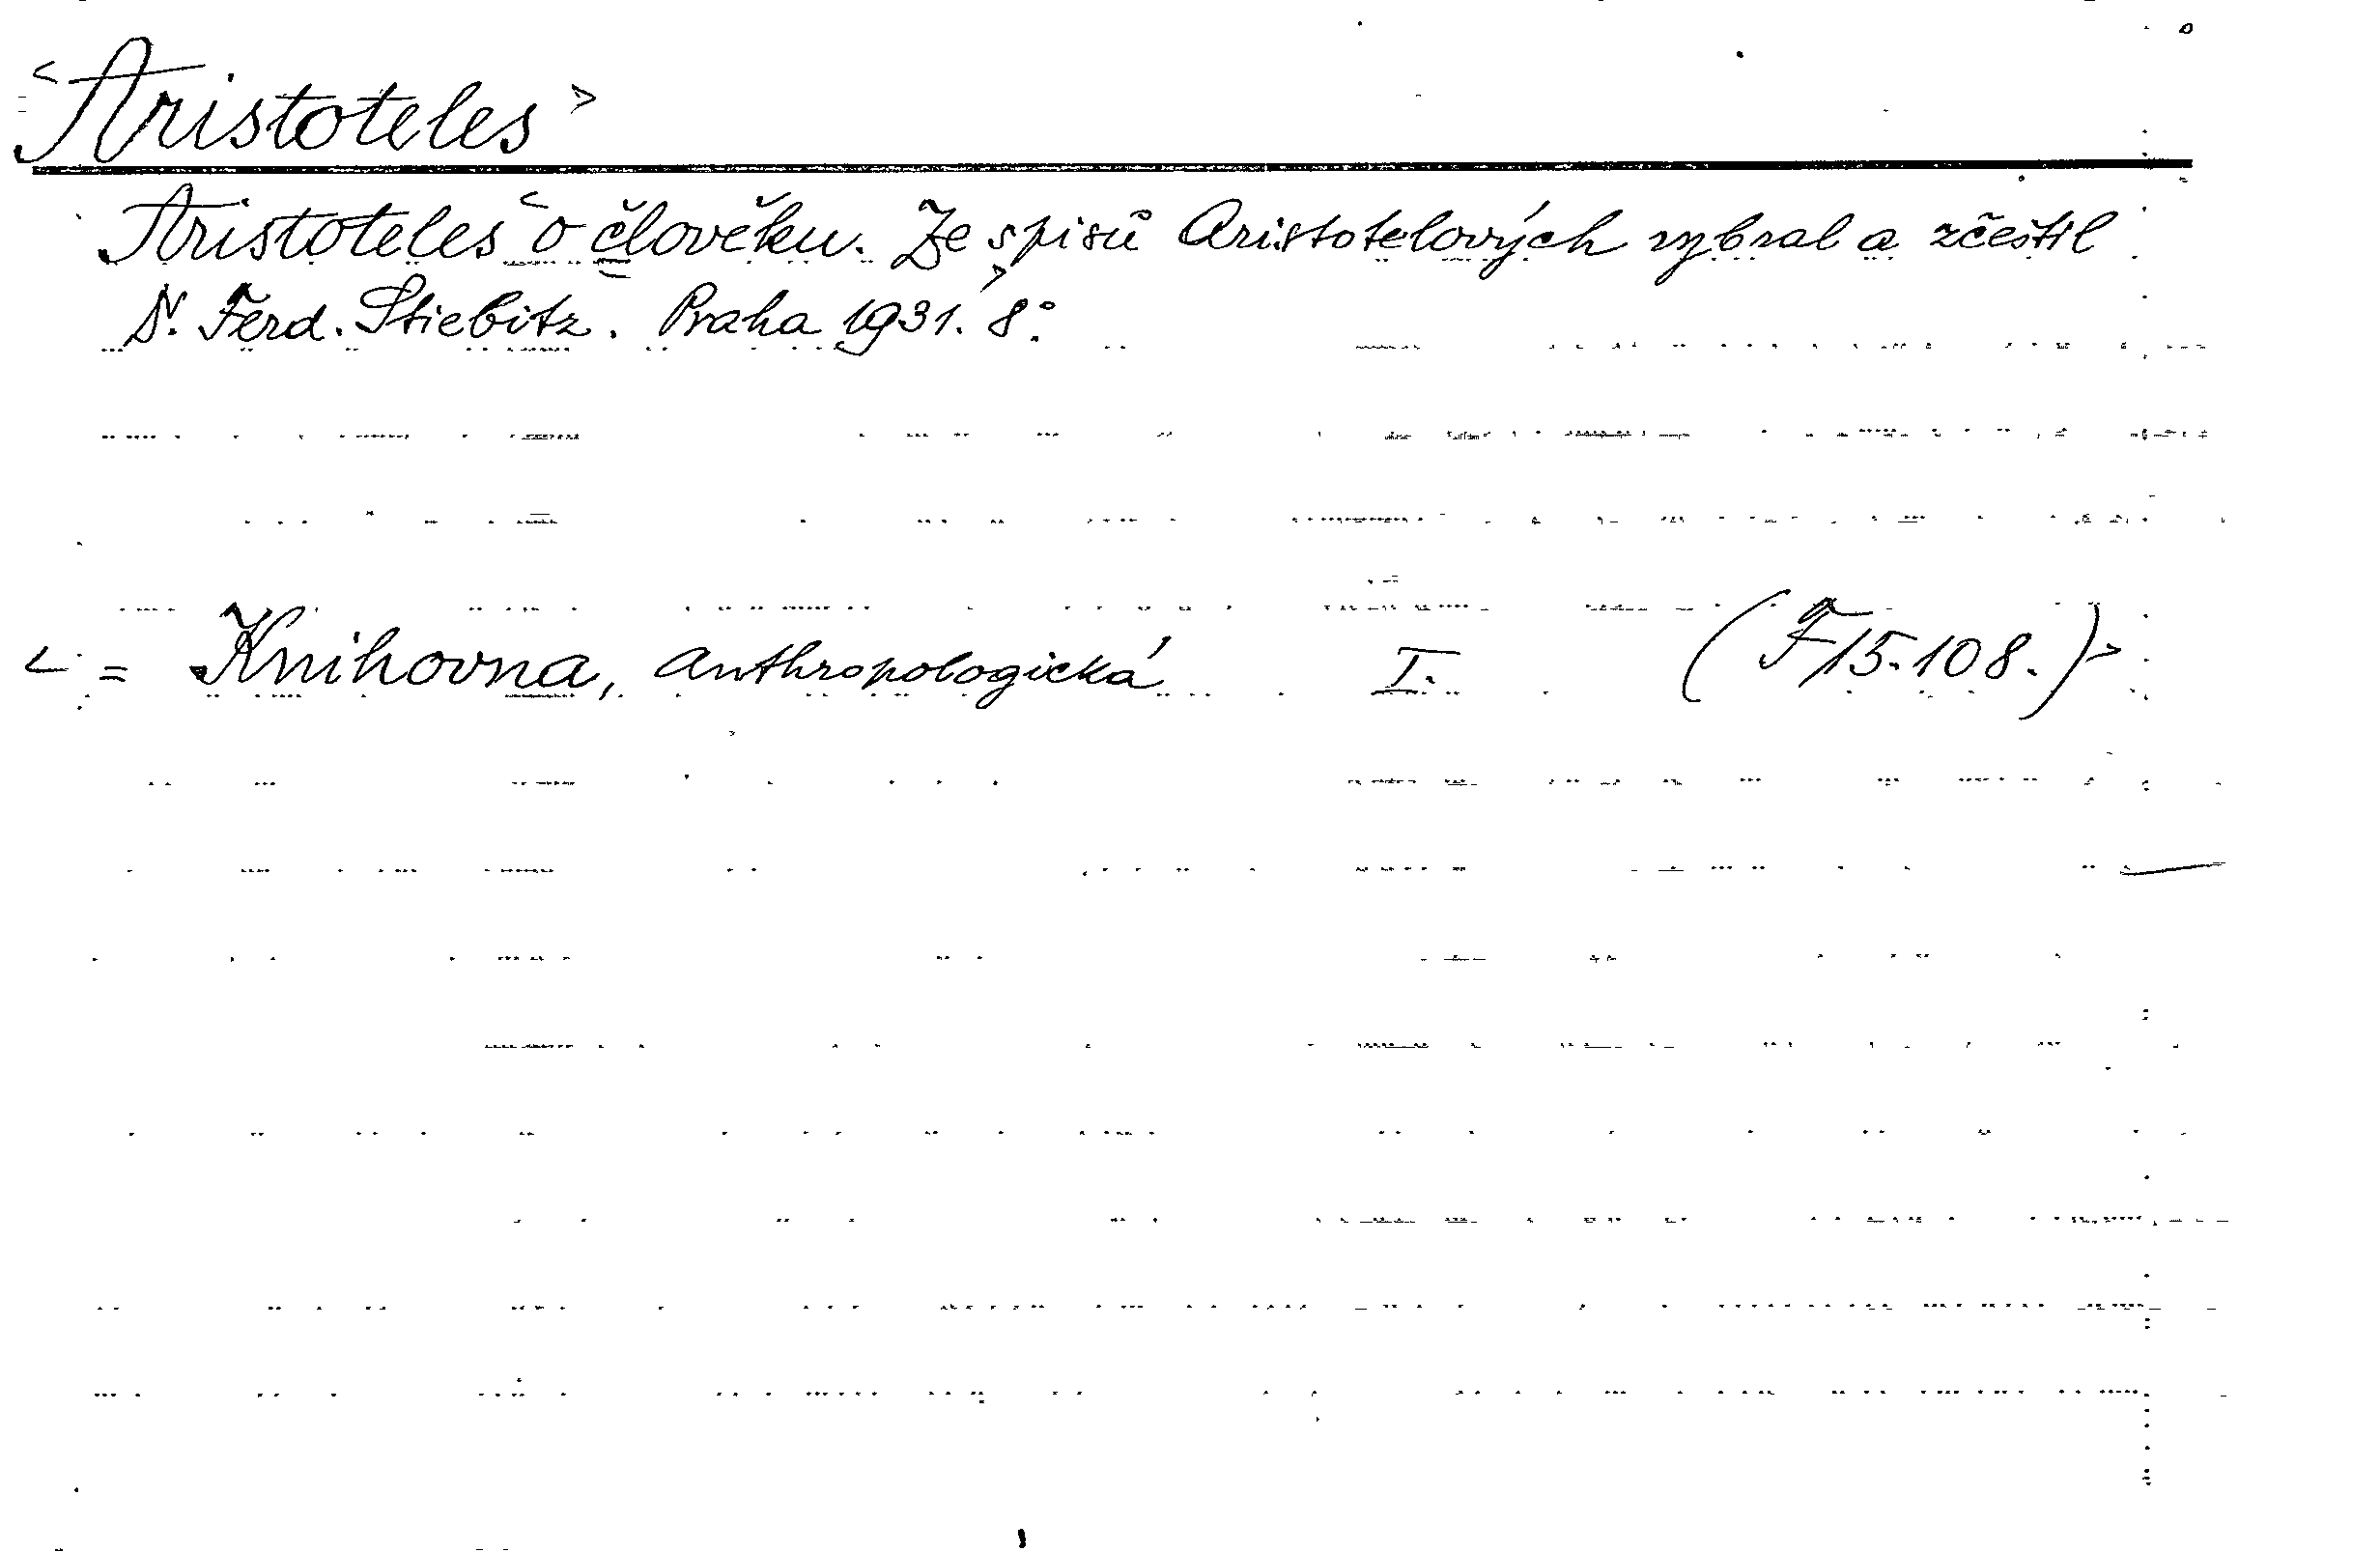 <Aristoteles>
Aristoteles <o člověku. Ze spisů Aristotelových vybral a zčeštil
Dr. Ferd. Stiebitz. Praha 1931.> 8°.
< = Knihovna, anthropologická I. (F 15.108.)>